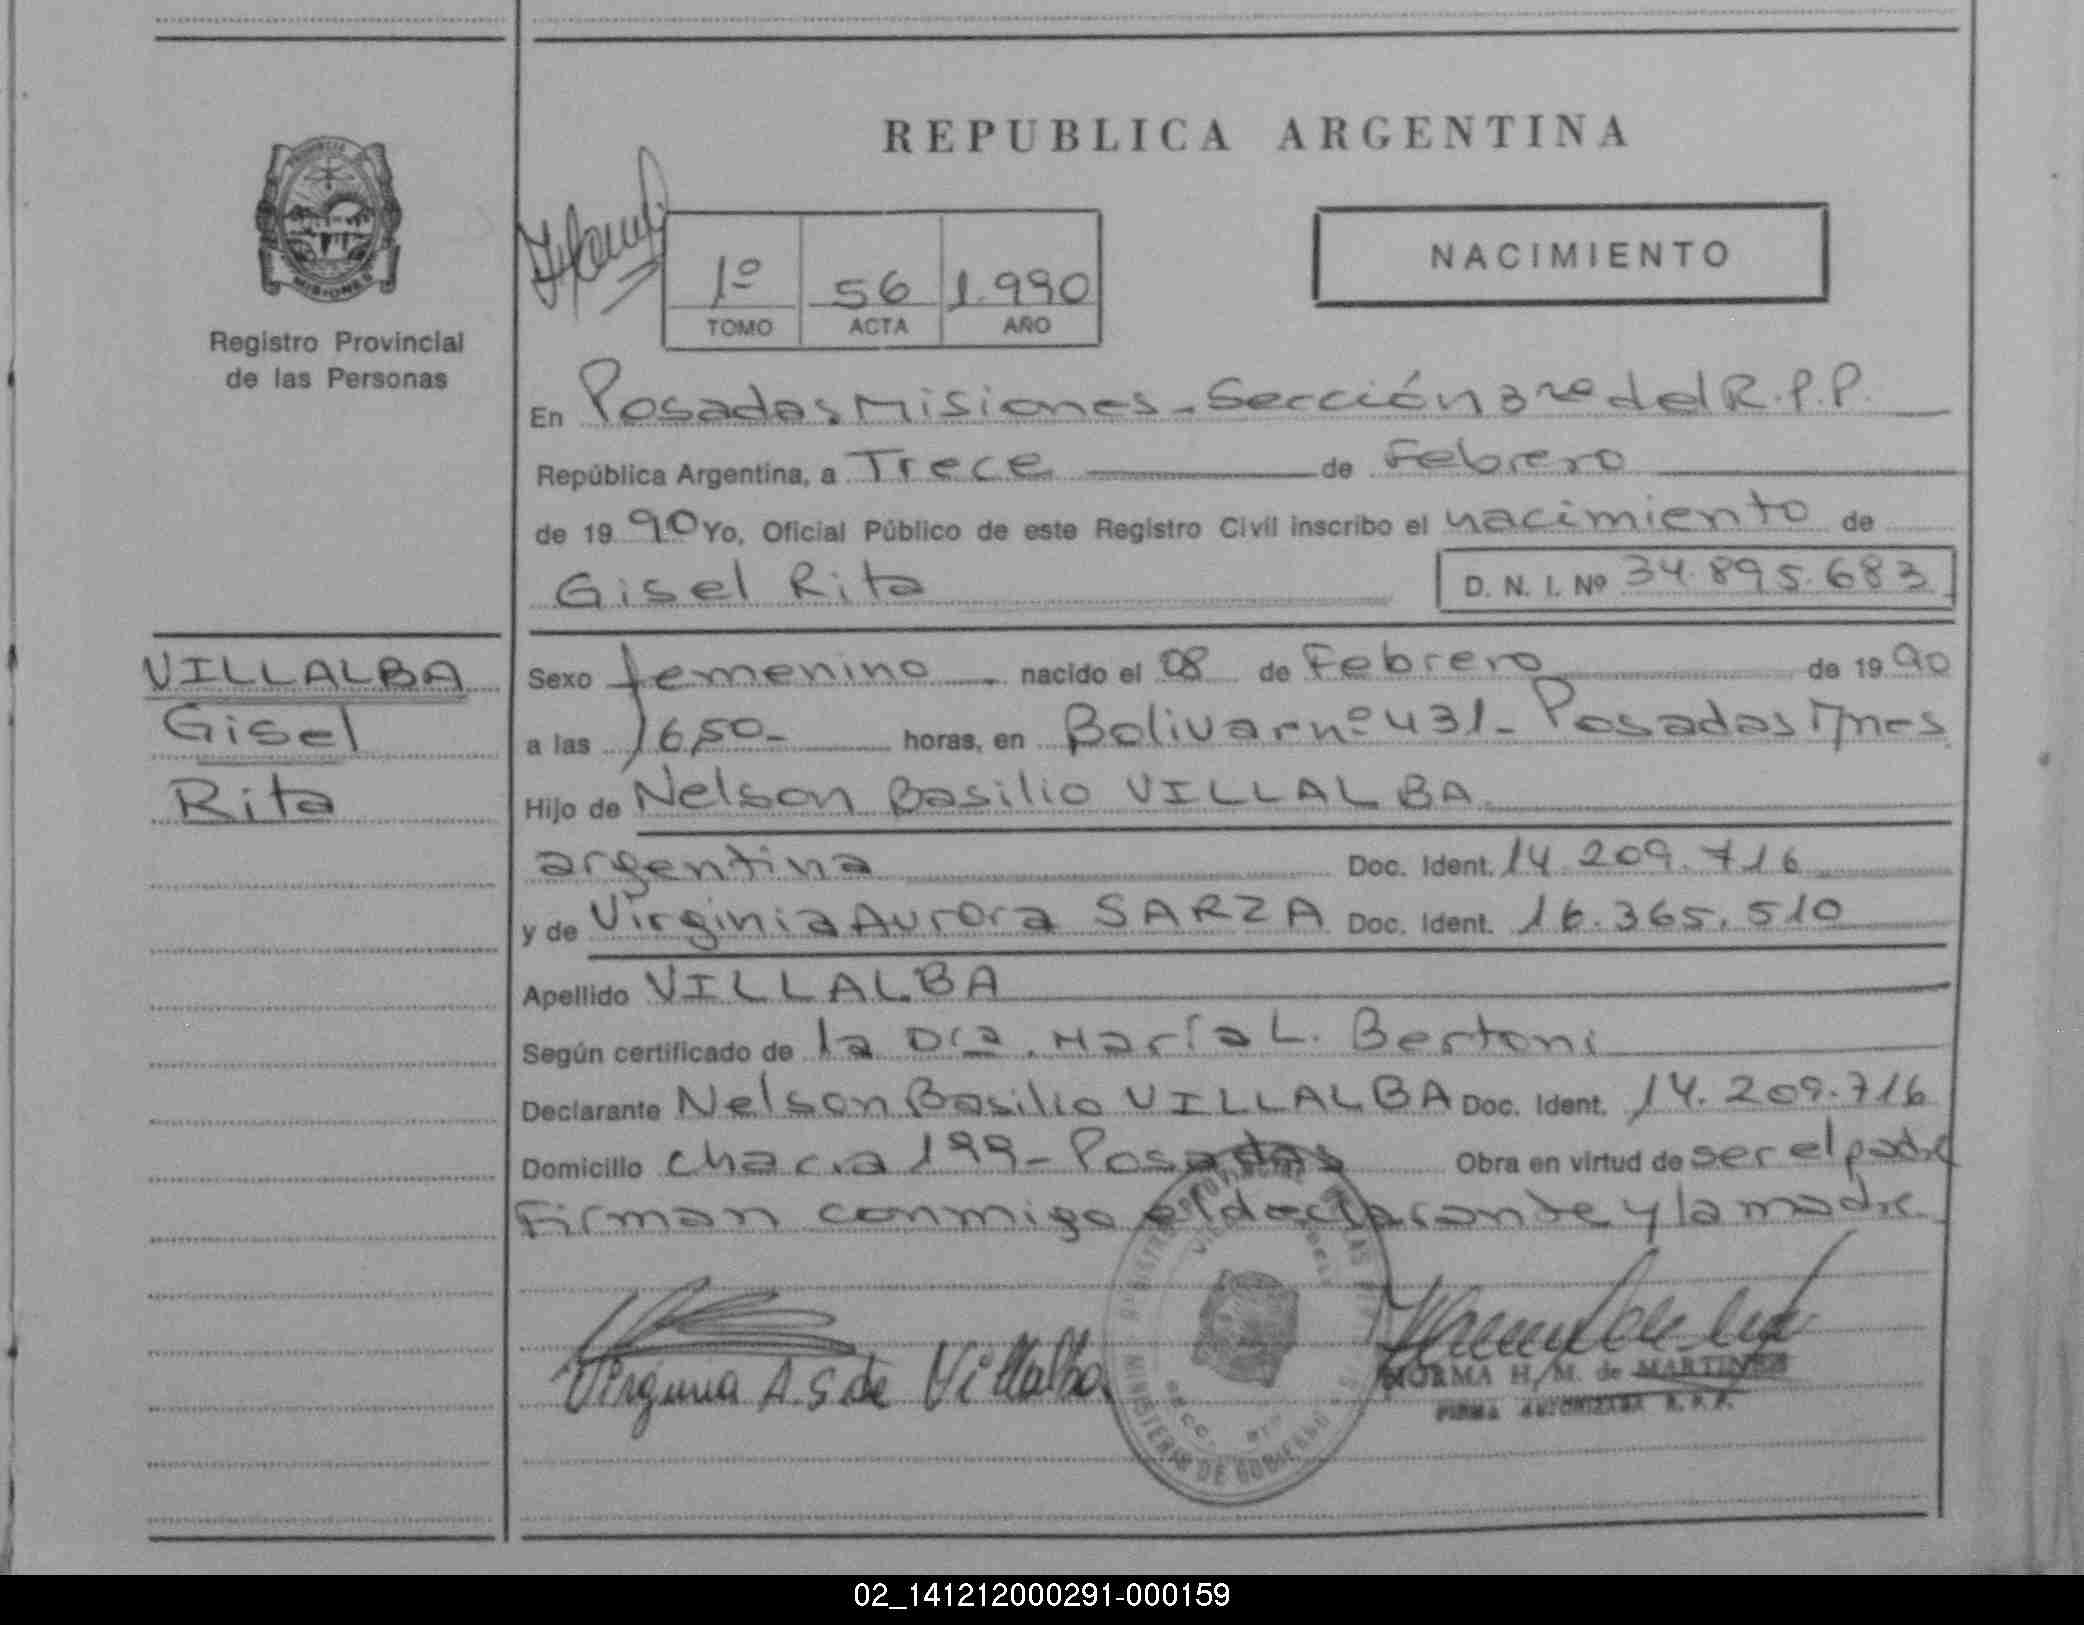 REPUBLICA ARGENTINA
NACIMIENTO
PROVINCIA
MISIONES
Registro Provincial
de las Personas
1º 56 1.990
TOMO ACTA AÑO
En Posadas, Misiones - Sección 3ra del R.P.P.
República Argentina, a Trece de Febrero
de 19 90 Yo, Oficial Público de este Registro Civil inscribo el nacimiento de
Gisel Rita D. N. I. Nº 34.895.683
VILLALBA
Gisel
Rita
Sexo femenino nacido el 08 de Febrero de 19 90
a las 16,50- horas, en Bolivar nº 431- Posadas Mnes
Hijo de Nelson Basilio VILLALBA
argentina Doc. Ident. 14.209.716
y de Virginia Aurora SARZA Doc. Ident. 16.365.510
Apellido VILLALBA
Según certificado de la Dra. María L. Bertoni
Declarante Nelson Basilio VILLALBA Doc. Ident. 14.209.716
Domicilio chacra 199- Posadas Obra en virtud de ser el padre
Firman conmigo el declarante y la madre
Virginia A. S. de Villalba
MINISTERIO DE GOBIERNO
NORMA H. M. de MARTINEZ
FIRMA AUTORIZADA R. P. P.
02_141212000291-000159